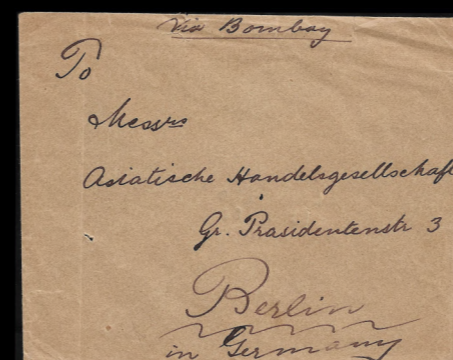 Via Bombay
To
Messrs
Asiatische Handelsgesellschaft
Gr. Prasidentenstr 3
Berlin
in Germany